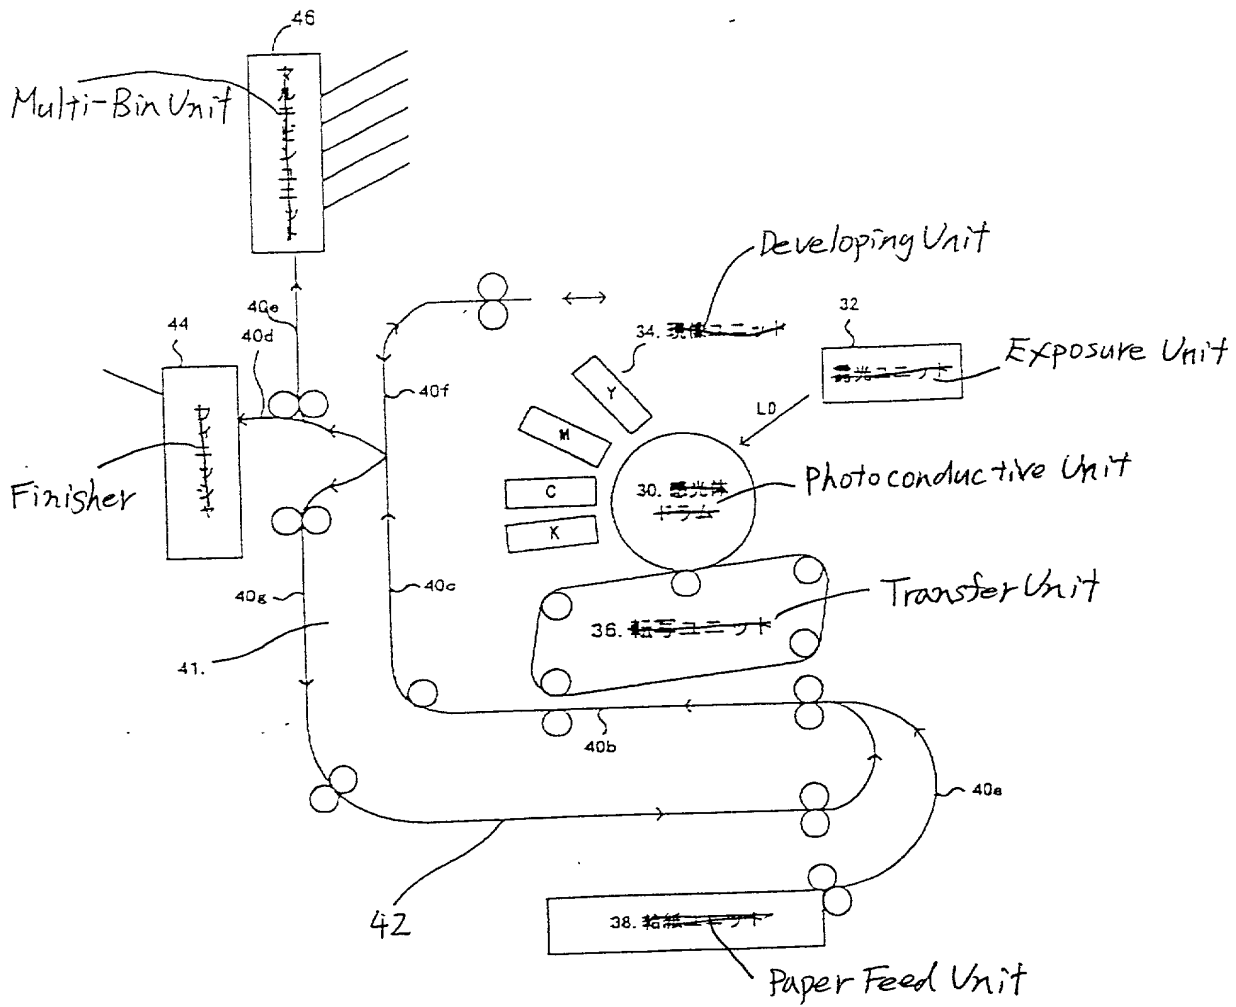 46
Multi-Bin Unit
マルチビンユニット
Developing Unit
40e
34. 現像ユニット
32
44
40d
露光ユニット
Exposure Unit
40f
Y
LD
M
フィニッシャ
Finisher
C
30. 感光体
ドラム
Photoconductive Unit
K
40g
40c
36. 転写ユニット
Transfer Unit
41.
40b
40a
42
38. 給紙ユニット
Paper Feed Unit